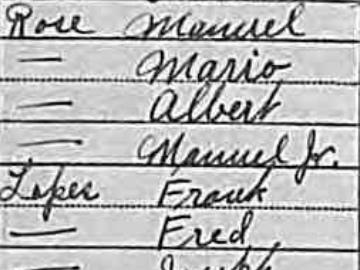 Rose Manuel
— Mario
— Albert
— Manuel Jr.
Lopes Frank
— Fred
—